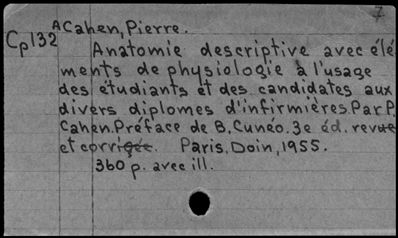 7
A Cahen, Pierre.
Cp132
Anatomie descriptive avec élé
ments de physiologie à l'usage
des étudiants et des candidates aux
divers diplomes d'infirmières. Par P.
Cahen. Préface de B. Cunéo. 3e éd. revue
et corrigée. Paris, Doin, 1955.
360 p. avec ill.